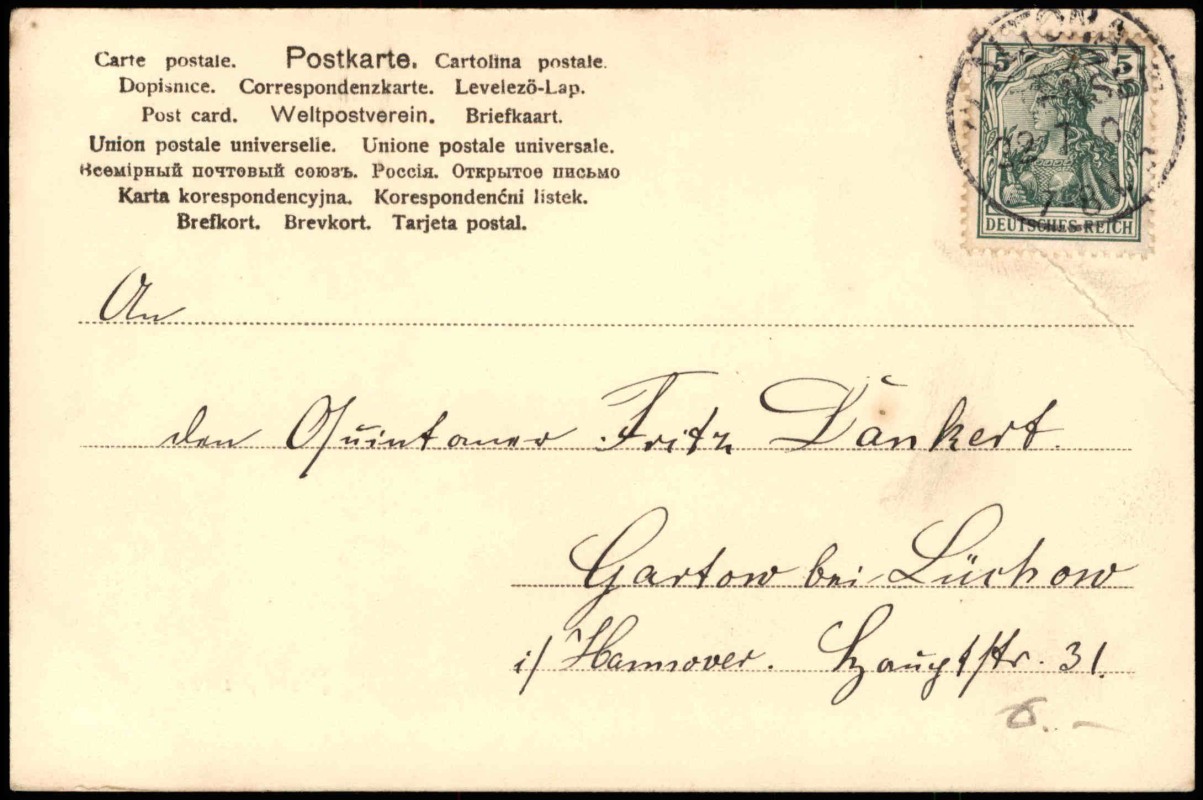 Carte postale. Postkarte. Cartolina postale.
Dopisnice. Correspondenzkarte. Levelezö-Lap.
Post card. Weltpostverein. Briefkaart.
Union postale universelle. Unione postale universale.
Всемірный почтовый союзъ. Россія. Открытое письмо
Karta korespondencyjna. Korespondenćni lístek.
Brefkort. Brevkort. Tarjeta postal.
5 5
DEUTSCHES REICH
ALTONA
An
den Quintaner Fritz Dankert.
Gartow bei Lüchow
i/ Hannover. Hauptstr. 31.
6.-